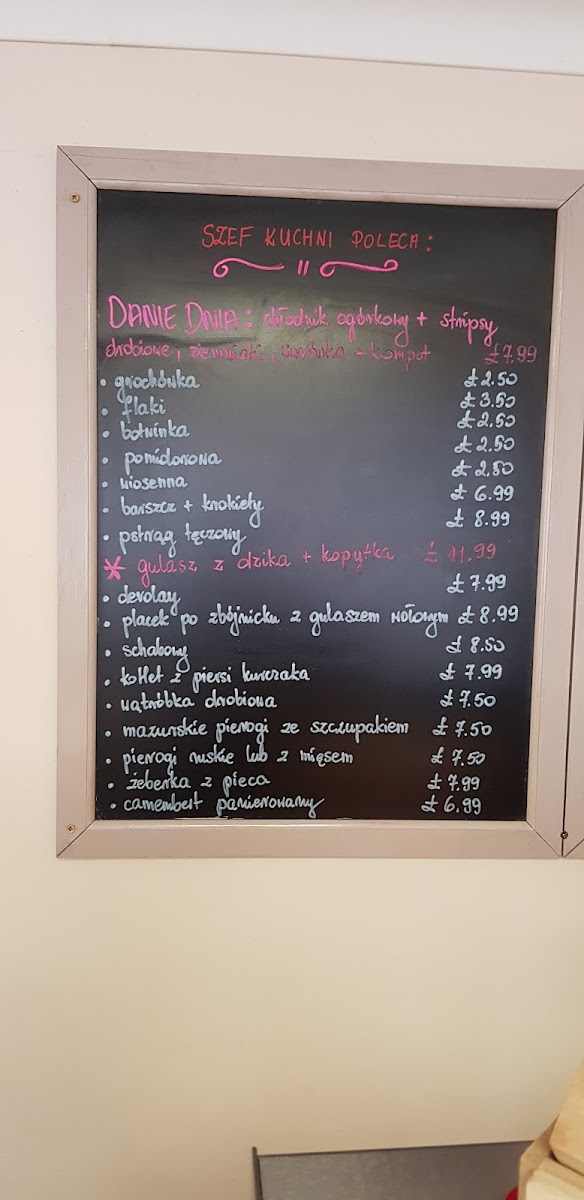 SZEF KUCHNI POLECA:
DANIE DNIA: chłodnik ogórkowy + stripsy
drobiowe, ziemniaki, surówka + kompot £7.99
• grochówka £2.50
• flaki £3.50
• botwinka £2.50
• pomidorowa £2.50
• wiosenna £2.50
• barszcz + krokiety £6.99
• pstrąg tęczowy £8.99
* gulasz z dzika + kopytka £11.99
• devolay £7.99
• placek po zbójnicku z gulaszem wołowym £8.99
• schabowy £8.50
• kotlet z piersi kurczaka £7.99
• wątróbka drobiowa £7.50
• mazurskie pierogi ze szczupakiem £7.50
• pierogi ruskie lub z mięsem £7.50
• żeberka z pieca £7.99
• camembert panierowany £6.99